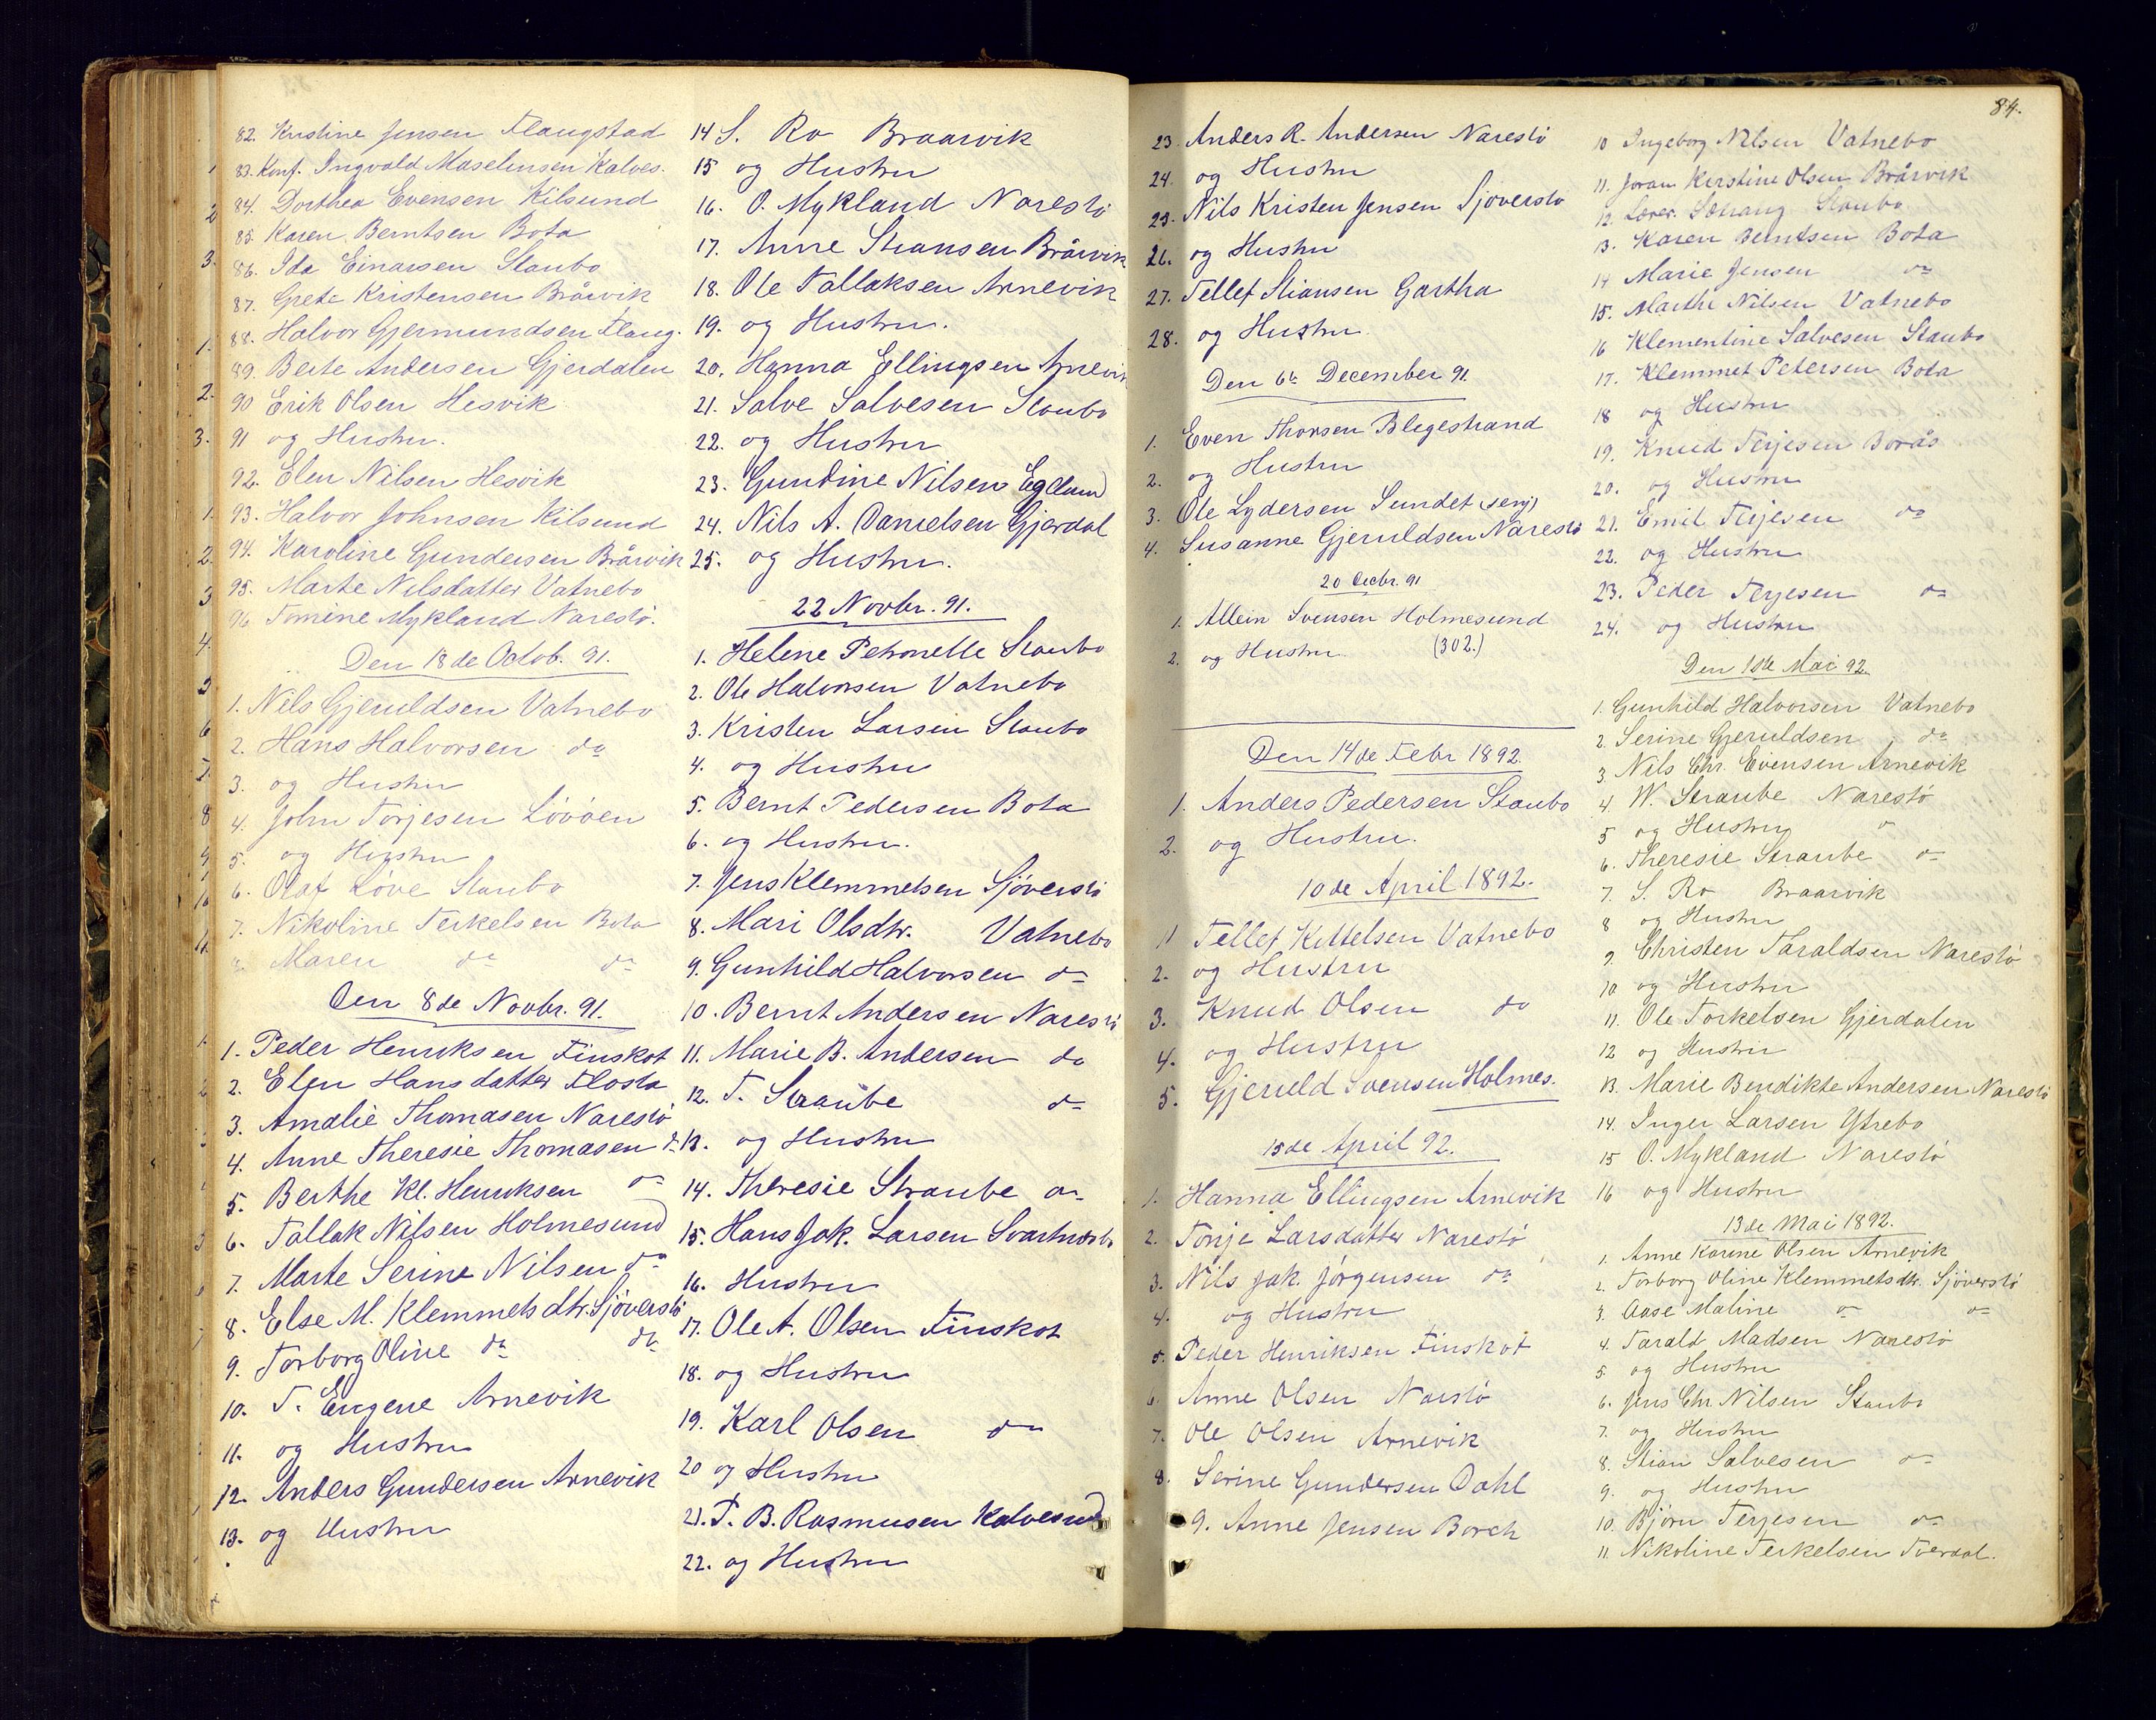 82. Kristine Jensen Flaugstad
83. Konf. Ingvald Maseliusen Kalves.
84. Dorthea Evensen Kilsund
85. Karen Berntsen Bota
86. Ida Einarsen Staubo
87. Grete Kristensen Bråvik
88. Halvor Gjermundsen Flaug.
89. Berte Andersen Gjerdalen
90 Erik Olsen Hesvik
91 og Hustru.
92. Elen Nilsen Hesvik
93. Halvor Johnsen Kilsund
94. Karoline Gundersen Bråvik
95. Marte Nilsdatter Vatnebo
96. Tomine Mykland Narestö.
Den 18de Octob. 91.
1. Nils Gjeruldsen Vatnebo
2. Hans Halvorsen do
3. og Hustru
4. John Torjesen Lövöen
5. og Hustru
6. Olaf Löve Staubo
7. Nikoline Terkelsen Bota
8. Maren do do
Den 8de Novbr. 91.
1. Peder Henriksen Finskot
2. Elen Hansdatter Flosta
3. Amalie Thomasen Narestö
4. Anne Theresie Thomasen do
5. Berthe Kl. Henriksen do
6. Tallak Nilsen Holmesund
7. Marte Serine Nilsen do
8. Else M. Klemmetsdtr. Sjöverstö
9. Torborg Oline do do
10. T. Eugene Arnevik
11. og Hustru
12. Anders Gundersen Arnevik
13. og Hustru
14 S. Ro Braarvik
15 og Hustru
16. O. Mykland Narestö
17. Anne Stiansen Bråvik
18. Ole Tallaksen Arnevik
19. og Hustru.
20. Hanna Ellingsen Arnevik
21. Salve Salvesen Staubo
22. og Hustru
23. Gundine Nilsen Eglund
24. Nils A. Danielsen Gjerdal
25. og Hustru.
22 Novbr. 91.
1. Helene Petronelle Staubo
2. Ole Halvorsen Vatnebo
3. Kristen Larsen Staubo
4. og Hustru
5. Bernt Pedersen Bota
6. og Hustru.
7. Jens Klemmetsen Sjöverstö
8. Mari Olsdtr. Vatnebo
9. Gunhild Halvorsen do
10. Bernt Andersen Narestö
11. Marie B. Andersen do
12. T. Straube do
13. og Hustru
14. Theresie Straube do
15. Hans Jak. Larsen Svartnæsbo
16. Hustru
17. Ole A. Olsen Finskot
18. og Hustru
19. Karl Olsen do
20 og Hustru
21. T. B. Rasmusen Kalvesund
22. og Hustru
84.
23. Anders R. Andersen Narestö
24. og Hustru
25. Nils Kristen Jensen Sjöverstö
26. og Hustru
27. Tellef Stiansen Gartha
28. og Hustru
Den 6te December 91.
1. Even Thorsen Blegestrand
2. og Hustru
3. Ole Lydersen Sundet (seng)
4. Susanne Gjeruldsen Narestö
20 Decbr. 91
1. Allein Svensen Holmesund
2. og Hustru (302.)
Den 14de Febr 1892.
1. Anders Pedersen Staubo
2. og Hustru.
10de April 1892.
1 Tellef Kittelsen Vatnebo
2. og Hustru
3. Knud Olsen do
4. og Hustru
5. Gjeruld Svensen Holmes.
15de April 92.
1. Hanna Ellingsen Arnevik
2. Tonje Larsdatter Narestö
3. Nils Jak. Jörgensen do
4. og Hustru
5. Peder Henriksen Finskot
6. Anne Olsen Narstö
7. Ole Olsen Arnevik
8. Serine Gundersen Dahl
9. Anne Jensen Borch
10 Ingeborg Nilsen Vatnebo
11. Joran Kirstine Olsen Brårvik
12. Lærer Staubo
13. Karen Berntsen Bota
14 Marie Jensen do
15. Marthe Nilsen Vatnebo
16 Klementine Salvesen Staubo
17. Klemmet Petersen Bota
18 og Hustru
19. Knud Terjesen Borås
20. og Hustru
21. Emil Terjesen do
22. og Hustru
23. Peder Terjesen do
24. og Hustru
Den 1ste Mai 92.
1. Gunhild Halvorsen Vatnebo
2. Serine Gjeruldsen do
3 Nils Chr. Evensen Arnevik
4 W. Straube Narestö
5 og Hustru
6. Theresie Straube do
7. S. Ro Braarvik
8 og Hustru
9 Christen Taraldsen Narestö
10 og Hustru
11. Ole Torkelsen Gjerdalen
12 og Hustru
13. Marie Bendikte Andersen Narestö
14. Inger Larsen Ytrebo
15 O. Mykland Narestö
16 og Hustru
13de Mai 1892.
1. Anne Karine Olsen Arnevik
2. Torborg Oline Klemmetsdtr. Sjöverstö
3. Aase Maline do do
4. Tarald Madsen Narestö
5. og Hustru
6. Jens Chr Nilsen Staubo
7. og Hustru
8. Stian Salvesen do
9. og Hustru
10. Björn Terjesen do
11. Nikoline Terkelsen Tverdal.